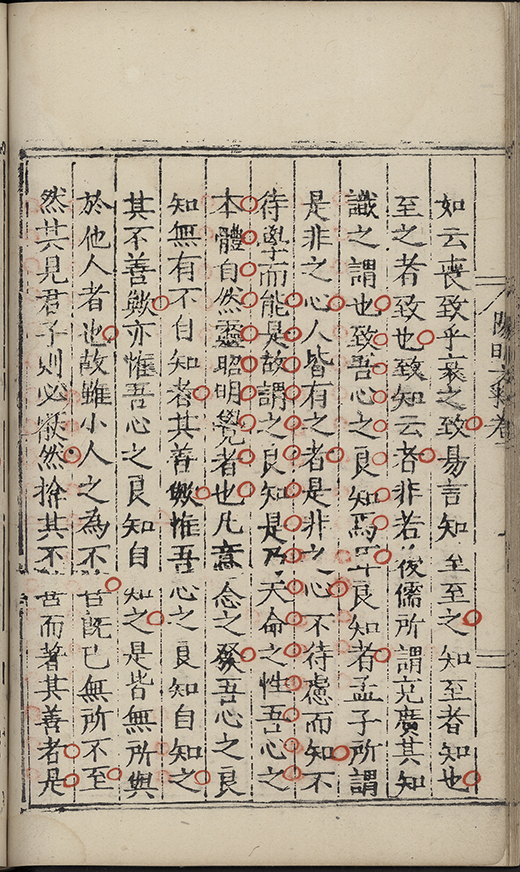 陽明文粹卷
如云喪致乎哀之致易言知至至之知至者知也
至之者致也致知云者非若後儒所謂充廣其知
識之謂也致吾心之良知焉耳良知者孟子所謂
是非之心人皆有之者是非之心不待慮而知不
待學而能是故謂之良知是乃天命之性吾心之
本體自然靈昭明覺者也凡意念之發吾心之良
知無有不自知者其善歟惟吾心之良知自知之
其不善歟亦惟吾心之良知自知之是皆無所與
於他人者也故雖小人之為不善既已無所不至
然其見君子則必厭然揜其不善而著其善者是